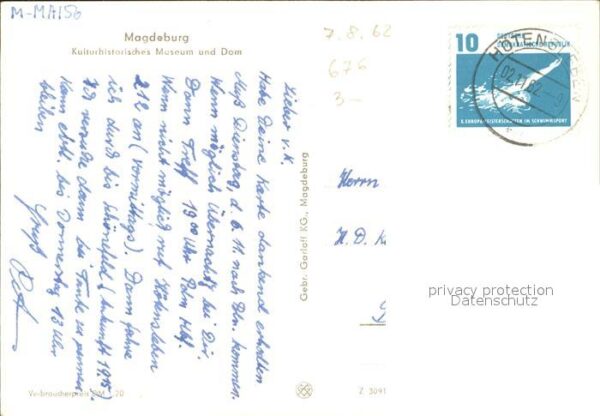 M-MA156
Magdeburg
Kulturhistorisches Museum und Dom
7.8.62
676
3-
10
DEUTSCHE
DEMOKRATISCHE REPUBLIK
X. EUROPAMEISTERSCHAFTEN IM SCHWIMMSPORT
HÖTENSLEBEN
02.11.62
Lieber V. K.
Habe Deine Karte dankend erhalten
Muß Dienstag, d. 6. 11 nach Dln. kommen.
Wenn möglich Übernacht. bei Dir.
Dann Treff 19 00 Uhr Bhf.
Wenn nicht möglich ruf Hötensleben
212 an (vormittags). Dann fahre
ich durch bis Schönefeld (Ankunft 19.15)
Ich würde dann bei Tante zu pennen
Kann evtl. bis Donnerstag 13 Uhr
bleiben
Gruß
Gebr. Garloff KG., Magdeburg
Herrn
H. D. K
privacy protection
Datenschutz
Verbraucherpreis DM -.20
Z 3091